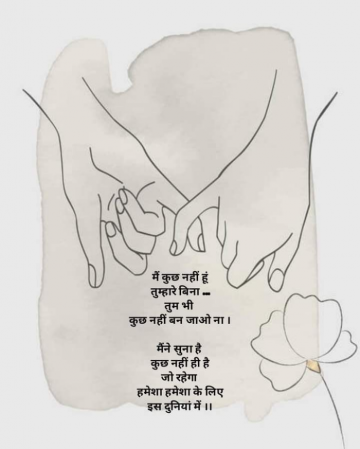 मैं कुछ नहीं हूं
तुम्हारे बिना ...
तुम भी
कुछ नहीं बन जाओ ना ।
मैंने सुना है
कुछ नहीं ही है
जो रहेगा
हमेशा हमेशा के लिए
इस दुनियां में ।।